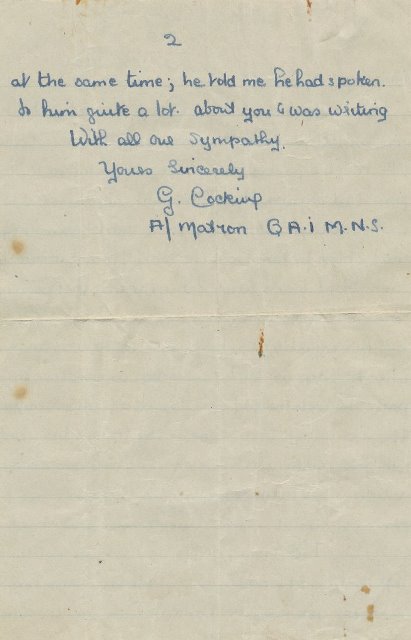 2
at the same time; he told me he had spoken.
to him quite a lot. about you & was writing
With all our sympathy.
Yours Sincerely
G. Cocking
A/ Matron Q A.I M.N.S.